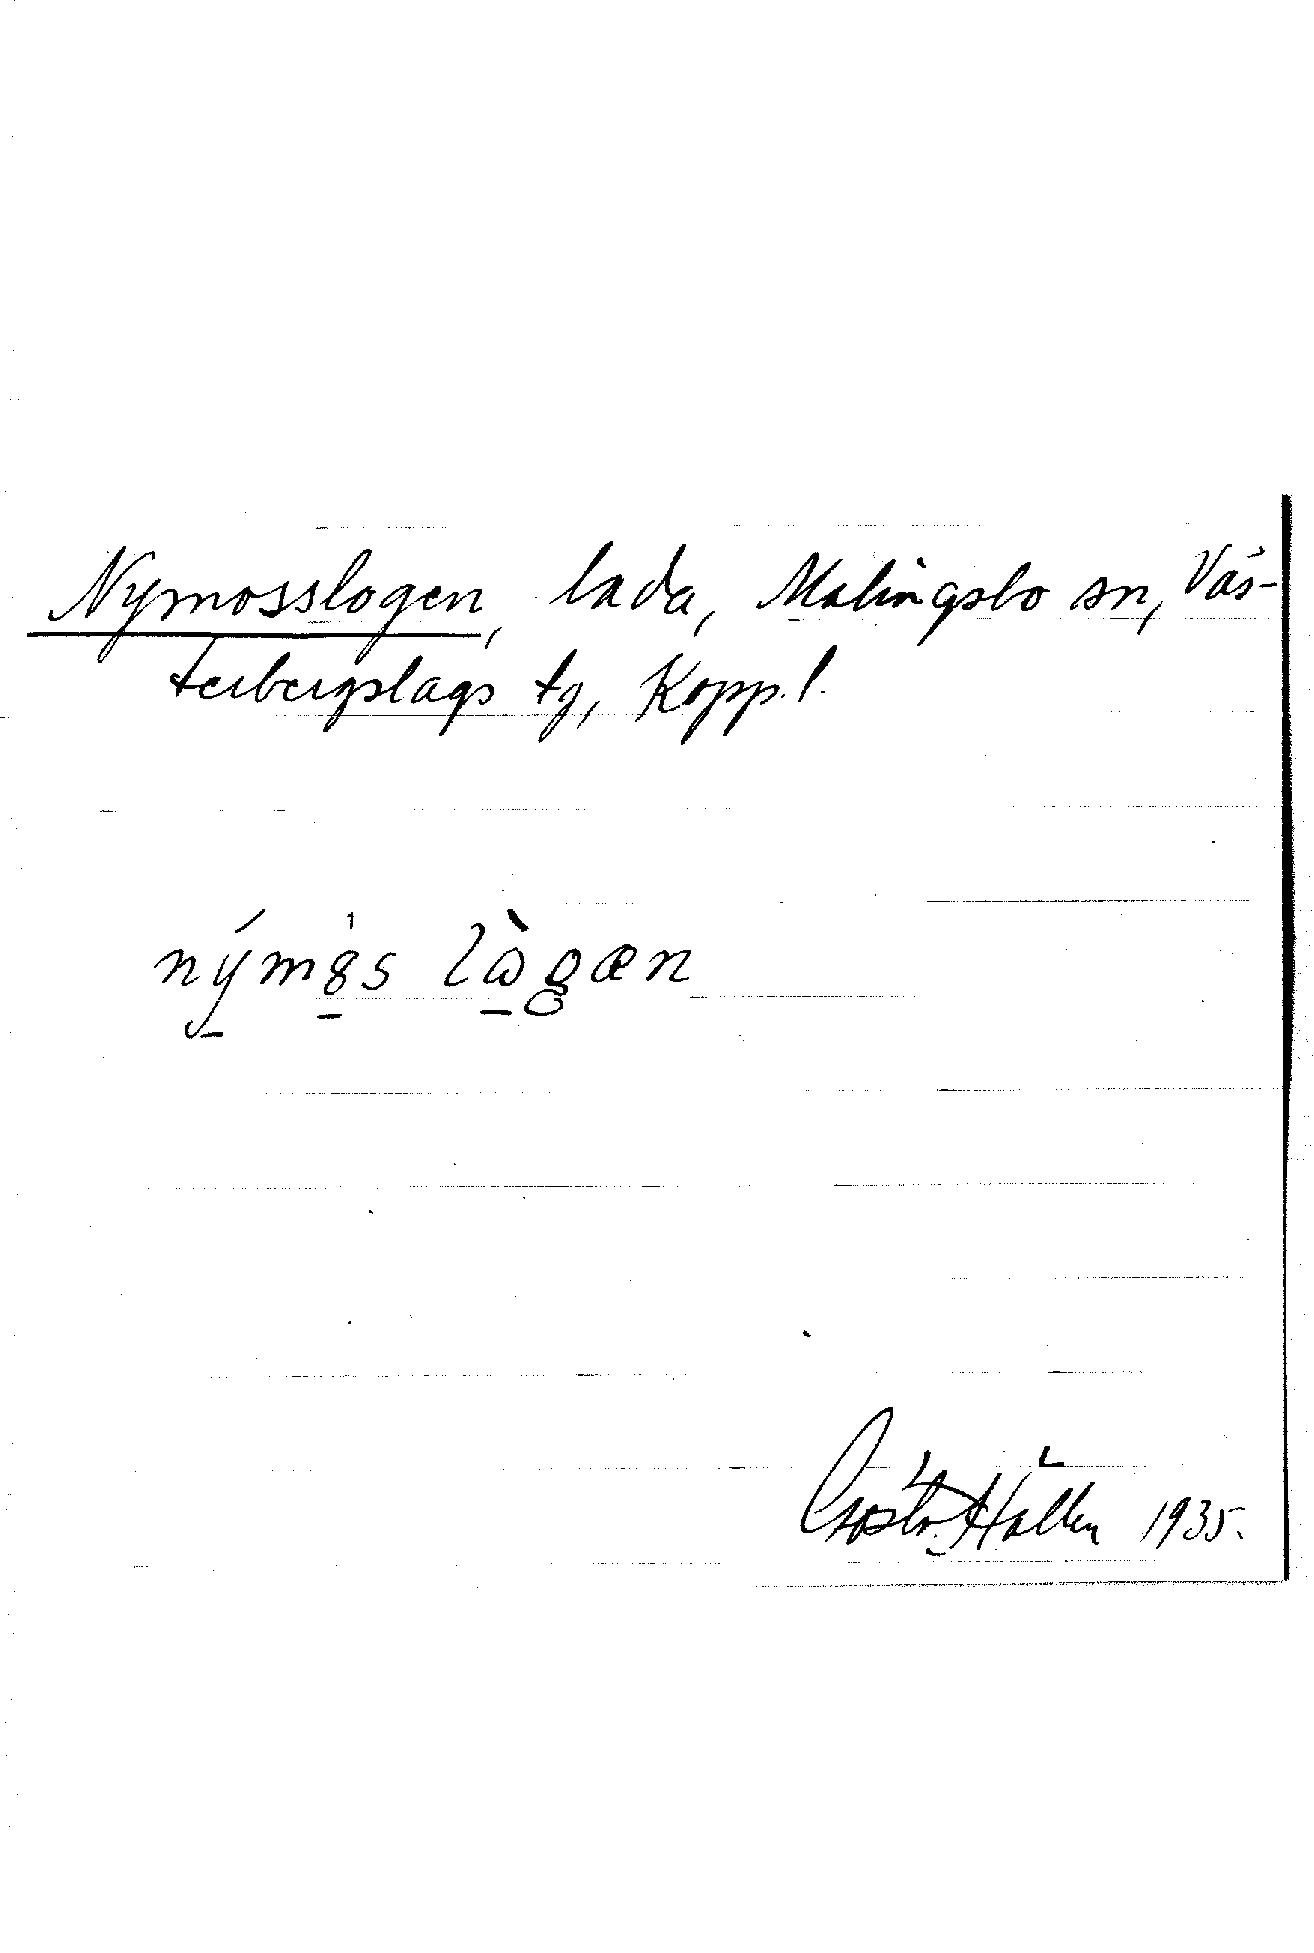 Nymosslogen, lada, Malingsbo sn, Väs-
terbergslags tg, Kopp. l.
nýmȣs lògæn
Gösta Hallén 1935.